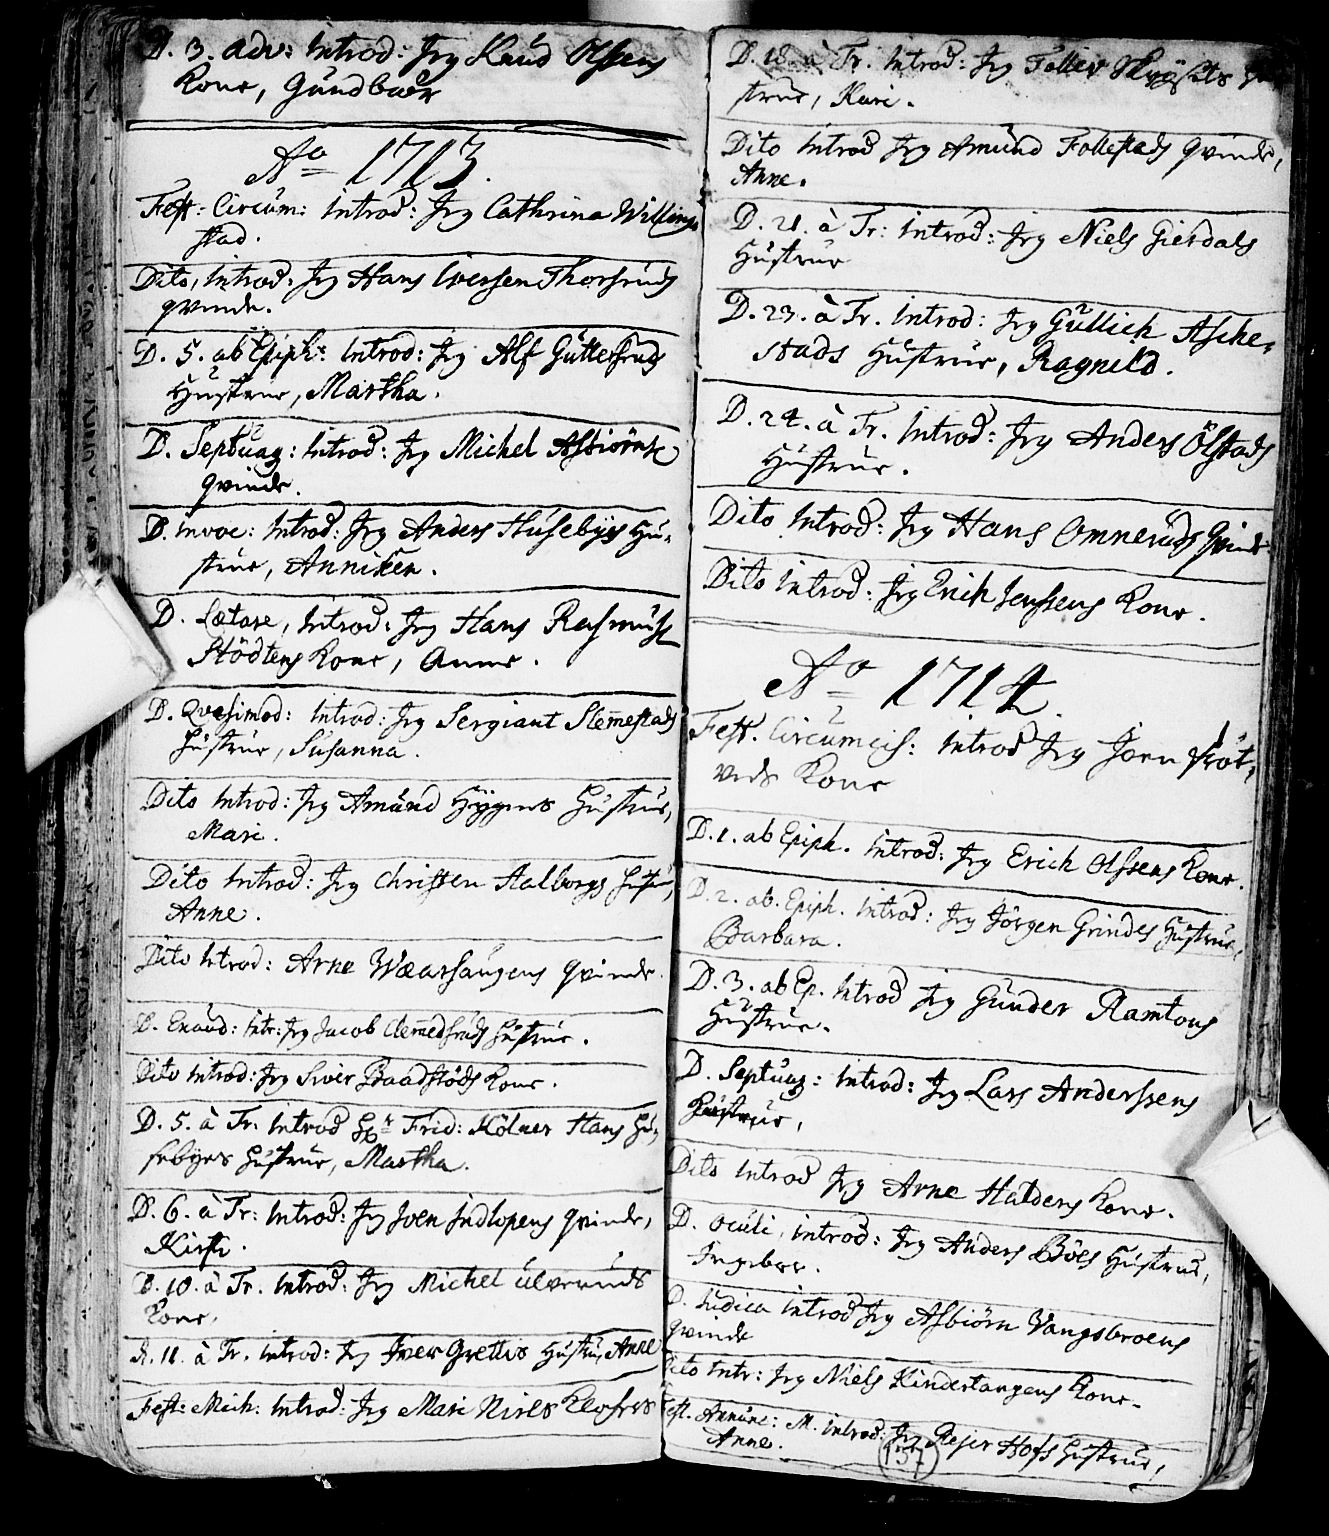 D. 3. adv: Introd: Jeg Knud Olssens
Kone, Gundbaar
Aº 1713.
Fest: Circum: introd: Jeg Cathrina Willing-
stad.
Dito, introd: Jeg Hans Iversen Thorsruds
qvinde.
D. 5. ab Epiph: introd: Jeg Alf Guttersruds
Hustrue, Martha.
D. Septuag: introd: Jeg Michel Asbiörns
qvinde.
D. invoc: Introd: Jeg Anders Husebÿes Hu-
strue, Anniken.
D. Lætare, introd: Jeg Hans Rasmuss
Stödtens Kone, Anne.
D. Qvasimod: introd: Jeg Sergiant Slem̄estads
Hustrue, Susanna.
Dito Introd: Jeg Amund Hÿgens Hustrue,
Mari.
Dito Introd: Jeg Christen Aalborgs Hustr,
Anne.
Dito Introd: Arne Wæarhaugens qvinde.
D. Exaud: intr: Jeg Jacob Clem̄edsruds Hustrue.
Dito introd: Jeg Siver Baadstöds Kone.
D. 5. à Tr: introd Hr Frid: Kölner Hans Hu-
sebÿes Hustrue, Martha.
D. 6. à Tr: Introd: Jeg Joen Indlopens qvinde,
Kirsti.
D. 10. à Tr. Introd: Jeg Michel Ulveruds
Kone,
D. 11. à Tr. introd: Jeg Iver Grettes Hustru, Anne
Fest: Mich: Introd: Jeg Mari Niels Klofers
D. 18. à Tr. Introd: Jeg Tollev
strue, Kari.
Dito introd Jeg Amund Follestads qvinde,
Anne.
D. 21. à Tr: introd: Jeg Niels Gierdals
Hustrue
D. 23. à Tr. Introd: Jeg Gullich Asche-
stads Hustrue, Ragnild.
D. 24. à Tr. Introd: Jeg Anders Ölstads
Hustrue.
Dito Introd: Jeg Hans Omneruds Qvinde
Dito introd: Jeg Erich Jenssens Kone.
Aº 1714.
Fest. Circumcis: introd Jeg Joen Fröt-
veds Kone
D. 1. ab Epiph. introd: Jeg Erich Olssens Kone.
D. 2. ab. Epiph. introd: Jeg Jörgen Grindes Hustrue,
Barbara.
D. 3. ab Ep. introd Jeg Gunder Ramtons
Hustrue.
D. Septuag: introd: Jeg Lars Anderssens
Hustrue,
Dito introd Jeg Arne Haldens Kone.
D. Oculi, introd: Jeg Anders Böes Hustrue,
Ingebor.
D. Judica introd Jeg Asbiörn Vangsbroens
qvinde
Dito intr: Jeg Niels Kindertangens Kone.
Fest. Annunc: M. introd: Jeg Rejer Hofs Hustrue,
Anne.
137